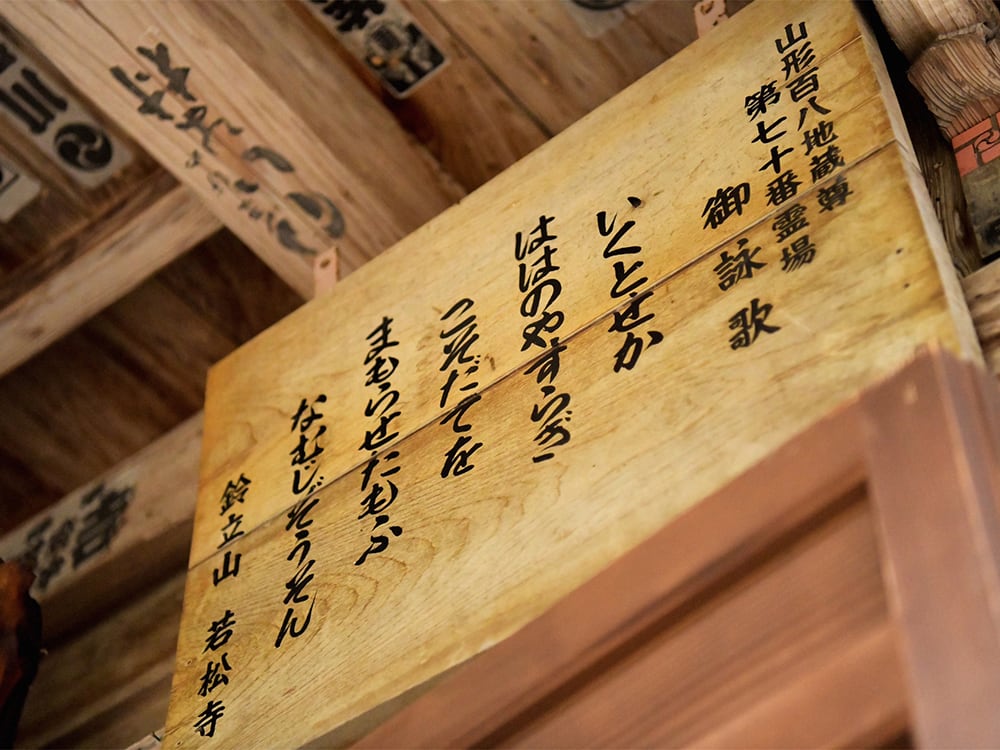 山形百八地蔵尊
第七十番霊場
御詠歌
いくとせか
ははのやすらぎ
こそだてを
まもらせたもふ
なむじぞうそん
鈴立山 若松寺